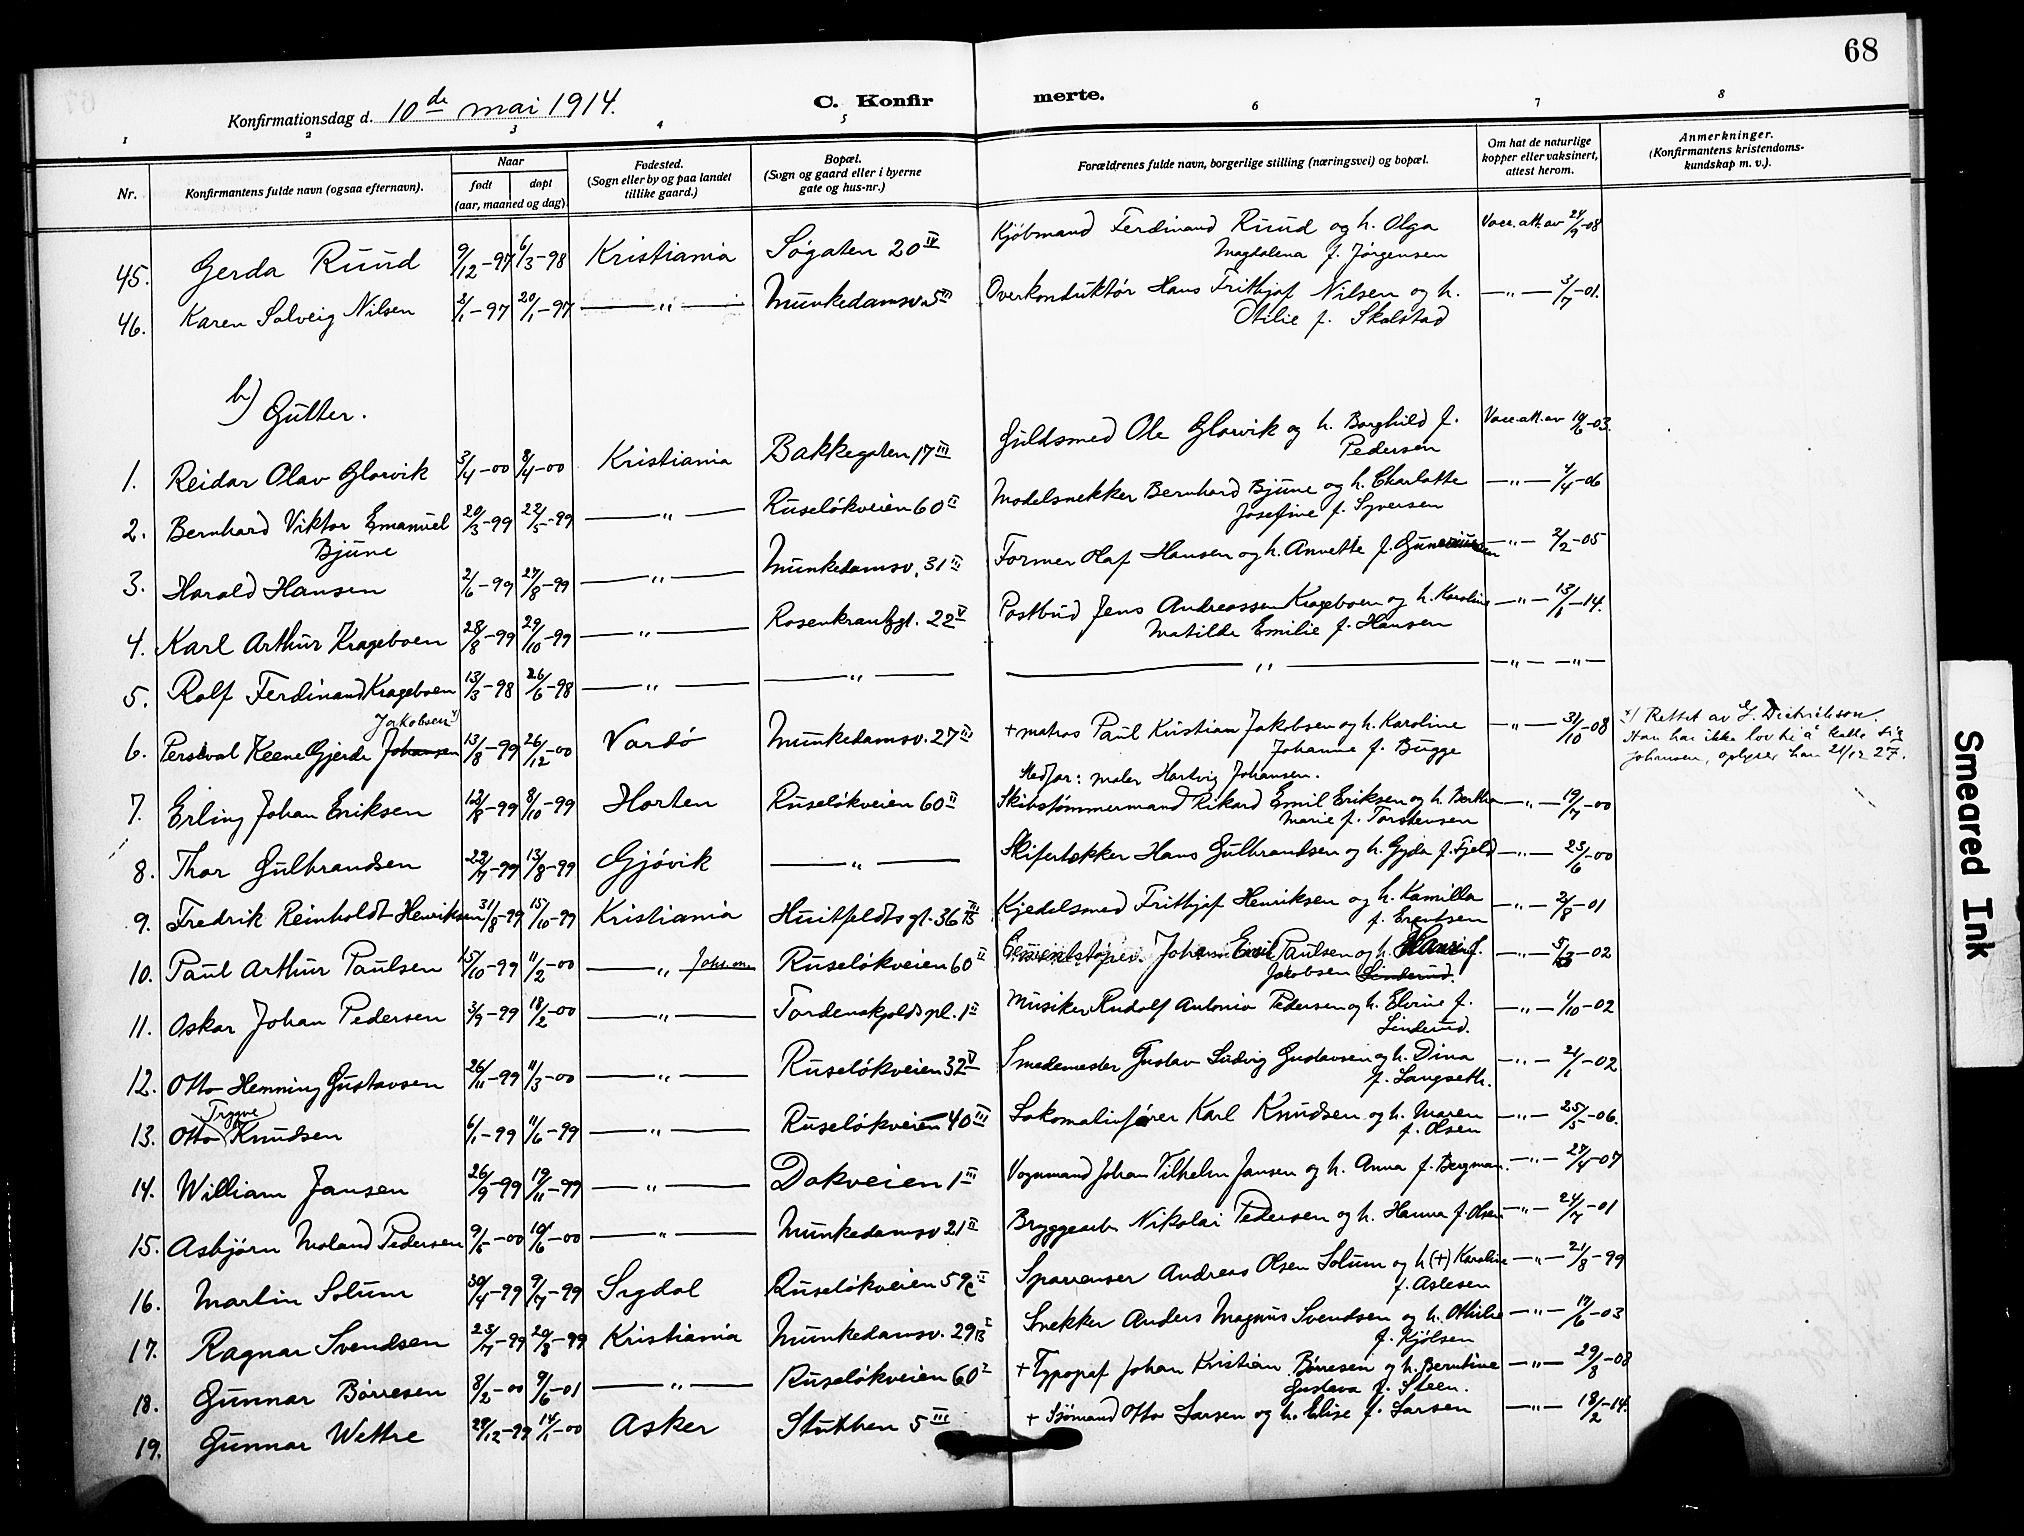 68
Konfirmationsdag d. 10de mai 1914.
C. Konfir merte.
1 2 3 4 5 6 7 8
Nr.
Konfirmantens fulde navn (ogsaa efternavn).
Naar
født døpt
(aar, maaned og dag).
Fødested.
(Sogn eller by og paa landet
tillike gaard.)
Bopæl.
(Sogn og gaard eller i byerne
gate og hus-nr.)
Forældrenes fulde navn, borgerlige stilling (næringsvei) og bopæl.
Om hat de naturlige
kopper eller vaksinert,
attest herom.
Anmerkninger.
(Konfirmantens kristendoms-
kundskap m. v.).
45. Gerda Ruud 9/12-97 6/3-98 Kristiania Søgaten 20 IV Kjøbmand Ferdinand Ruud og h. Olga Vacc. att. av 24/9-08
Magdalena f. Jørgensen
46. Karen Solveig Nilsen 2/1-97 20/1-97 —„— Munkedamsv. 5 III Overkonduktør Hans Frithjof Nilsen og h. —„— 3/7-01.
Otilie f. Skolstad
b) Gutter.
1. Reidar Olav Glorvik 3/4-00 8/4-00 Kristiania Bakkegaten 17 III Guldsmed Ole Glorvik og h. Borghild f. Vacc. att. av 19/6-03.
Pedersen
2. Bernhard Viktor Emanuel 20/3-99 22/5-99 —„— Ruseløkveien 60 II Modelsnekker Bernhard Bjune og h. Charlotte —„— 4/4-06
Bjune Josefine f. Syversen
3. Harald Hansen 2/6-99 27/8-99 —„— Munkedamsv. 31 III Former Olaf Hansen og h. Annette f. —„— 2/2-05
4. Karl Arthur Krageboen 28/8-99 29/10-99 —„— Rosenkrantzgt. 22 V Postbud Jens Andreassen Krageboen og h. Karoline —„— 13/1-14.
Matilde Emilie f. Hansen
5. Rolf Ferdinand Krageboen 13/3-98 26/6-98 —„— —„— —„— —„— —„—
Jakobsen x)
6. Persival Keene Gjerde Johansen 13/8-99 26/12-00 Vardø Munkedamsv. 27 III + matros Paul Kristian Jakobsen og h. Karoline —„— 31/10-08 x) Rettet av E. Dietrichson.
Johanne f. Bugge Han har ikke lov til å kalle sig
Stedfar: maler Hartvig Johansen. Johansen, oplyser han 21/12 27.
7. Erling Johan Eriksen 12/8-99 8/10-99 Horten Ruseløkveien 60 II Skibstømmermand Rikard Emil Eriksen og h. Bertha —„— 19/7-00
Marie f. Torstensen
8. Thor Gulbrandsen 22/7-99 13/8-99 Gjøvik —„— Skifertækker Hans Gulbrandsen og h. Gyda f. Fjeld —„— 25/6-00
9. Fredrik Reinholdt Henriksen 31/8-99 15/10-99 Kristiania Huitfeldtsgt. 36 B III Kjedelsmed Frithjof Henriksen og h. Kamilla —„— 2/8-01
f. Erentsen
10. Paul Arthur Paulsen 15/10-99 11/2-00 —„— Ruseløkveien 60 II Cementstøper Johan Emil Paulsen og h. Hansine f. —„— 5/3-02
Jakobsen Linderud.
11. Oskar Johan Pedersen 3/9-99 18/2-00 —„— Tordenskjolds pl. 1 II Musiker Rudolf Antonio Pedersen og h. Elvine f. —„— 1/10-02
Linderud.
12. Otto Henning Gustavsen 26/11-99 11/3-00 —„— Ruseløkveien 32 V Smedemester Gustav Ludvig Gustavsen og h. Dina —„— 21/1-02
f. Langseth.
Trygve
13. Otto Knudsen 6/1-99 11/6-99 —„— Ruseløkveien 40 III Lokomotivfører Karl Knudsen og h. Maren —„— 25/5-06.
f. Olsen
14. William Jansen 26/9-99 19/11-99 —„— Dokveien 1 III Vognmand Johan Vilhelm Jansen og h. Anna f. Bergman. —„— 27/4-07
15. Asbjørn Moland Pedersen 9/5-00 10/6-00 —„— Munkedamsv 21 II Bryggearb. Nikolai Pedersen og h. Hanna f. Olsen —„— 24/7-01
16. Martin Solum 30/4-99 9/7-99 Sigdal Ruseløkveien 59 c II Andreas Olsen Solum og h (+) Karoline —„— 21/8-99
f. Aslesen
17. Ragnar Svendsen 23/7-99 20/8-99 Kristiania Munkedamsv. 29 B I Snekker Anders Magnus Svendsen og h. Othilie —„— 17/6-03
f. Kjølsen
18. Gunnar Børresen 8/2-00 9/6-01 —„— Ruseløkveien 60 I + Typograf Johan Kristian Børresen og h. Berntine —„— 29/8-08
Gustava f. Steen.
19. Gunnar Wettre 29/12-99 14/1-00 Asker Stubben 5 III + Sjømand Otto Larsen og h. Elise f. Larsen —„— 18/2-14.
Smeared Ink